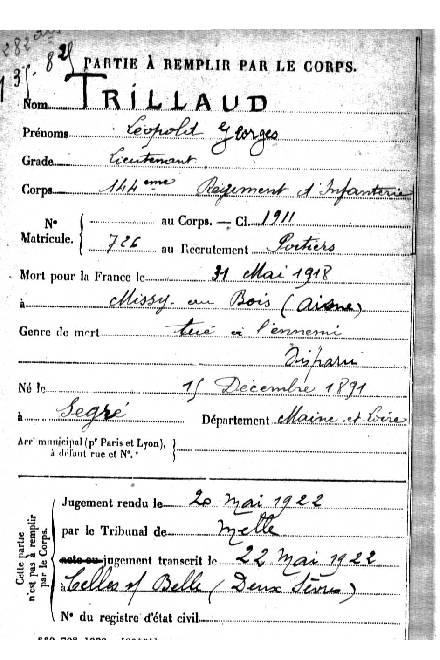 PARTIE À REMPLIR PAR LE CORPS.
Nom TRILLAUD
Prénoms Léopold Georges
Grade Lieutenant
Corps 144eme Régiment d'Infanterie
N° Matricule. { au Corps. — Cl. 1911
726 au Recrutement Poitiers
Mort pour la France le 31 Mai 1918
à Missy-au Bois (Aisne)
Genre de mort tué à l'ennemi
Disparu
Né le 15 Décembre 1891
à Segré Département Maine et Loire
Arr municipal (pr Paris et Lyon), }
à défaut rue et N°.
Cette partie n'est pas à remplir par le Corps.
Jugement rendu le 20 Mai 1922
par le Tribunal de Melle
acte ou jugement transcrit le 22 Mai 1922
à Celles s/ Belle (Deux Sèvres)
N° du registre d'état civil